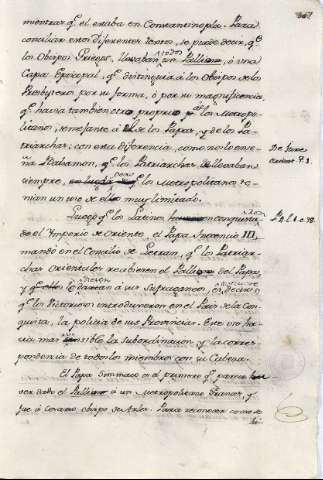 mientras qͤ el estaba en Constantinopla. Para
conciliar estos diferentes textos, se puede decir, qͤ
los Obispos Griegos, llevaban todos un Pallium, ó una
Capa Episcopal, qͤ distinguia á los Obispos de los
Presbyteros por su forma, ó por su magnificencia,
qͤ havia tambien otro proprio de los Metropo-
litanos, semejante á el de los Papas, y de los Pa-
triarchas, con esta diferencia, como nos lo ense-
ña Balsamon, qͤ los Patriarchas le llevaban
siempre, qͤ los Metropolitanos te-
nian un uso de el muy limitado.
Luego qͤ los Latinos conquista-
do el Ymperio de Oriente, el Papa Inocencio III,
mandó en el Concilio de Letran, qͤ los Patriar-
chas Orientales recibiesen el Pallium del Papa,
y á sus sufraganeos
qͤ los Victoriosos introduxeron en el Pais de la Con-
quista, la policia de sus Provincias. Este uso ha-
cia mas sensible la subordinacion, y la corres-
pondencia de todos los miembros con su Cabeza.
El Papa Simmaco es el primero qͤ parece
el Pallium á un Metropolitano Frances, qͤ
fue á Cesario obispo de Arles. Para reconocer como se